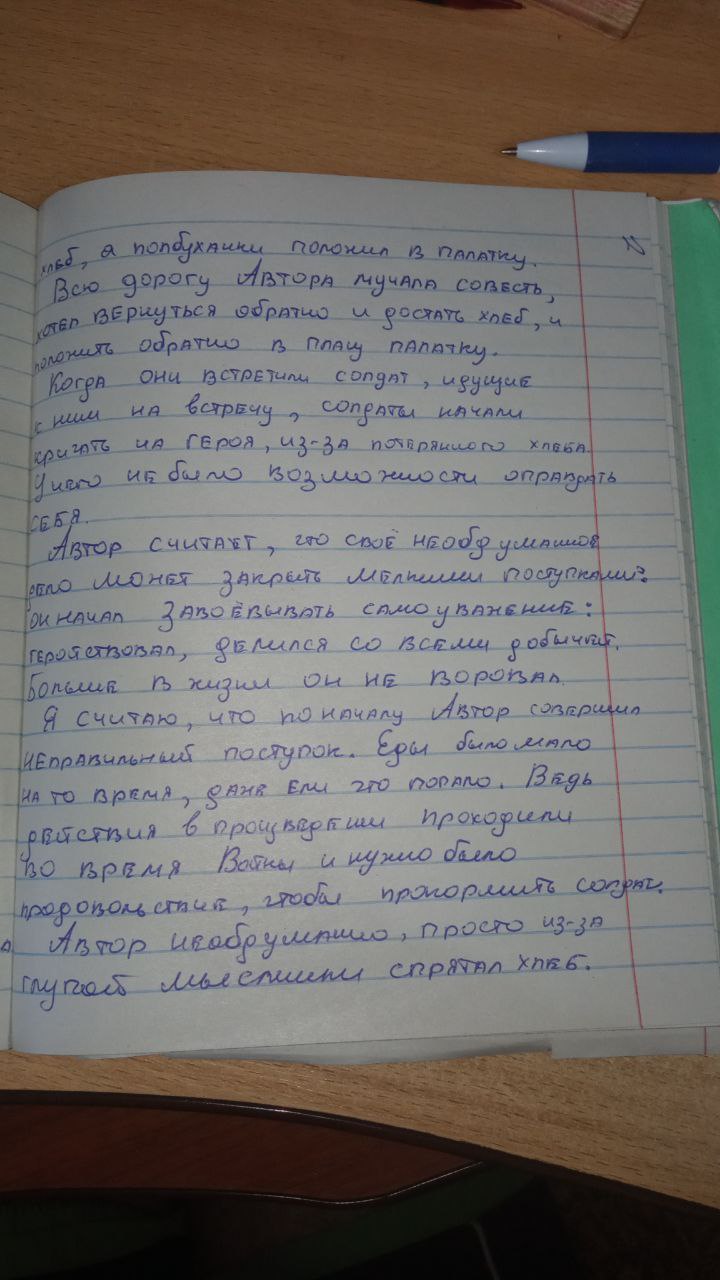 хлеб, а полбуханки положил в палатку.
Всю дорогу Автора мучала совесть,
хотел вернуться обратно и достать хлеб, и
положить обратно в плащ палатку.
Когда они встретили солдат, идущие
к ним на встречу, солдаты начали
кричать на героя, из-за потерянного хлеба.
У него не было возможности оправдать
себя.
Автор считает, что своё необдуманное
дело может закрыть мелкими поступками:
он начал завоёвывать самоуважение:
геройствовал, делился со всеми добычей.
Больше в жизни он не воровал.
Я считаю, что поначалу Автор совершил
неправильный поступок. Еды было мало
на то время, даже ели что попало. Ведь
действия в произведении проходили
во время Войны и нужно было
продовольствие, чтобы прокормить солдат.
Автор необдуманно, просто из-за
глупой мыслишки спрятал хлеб.